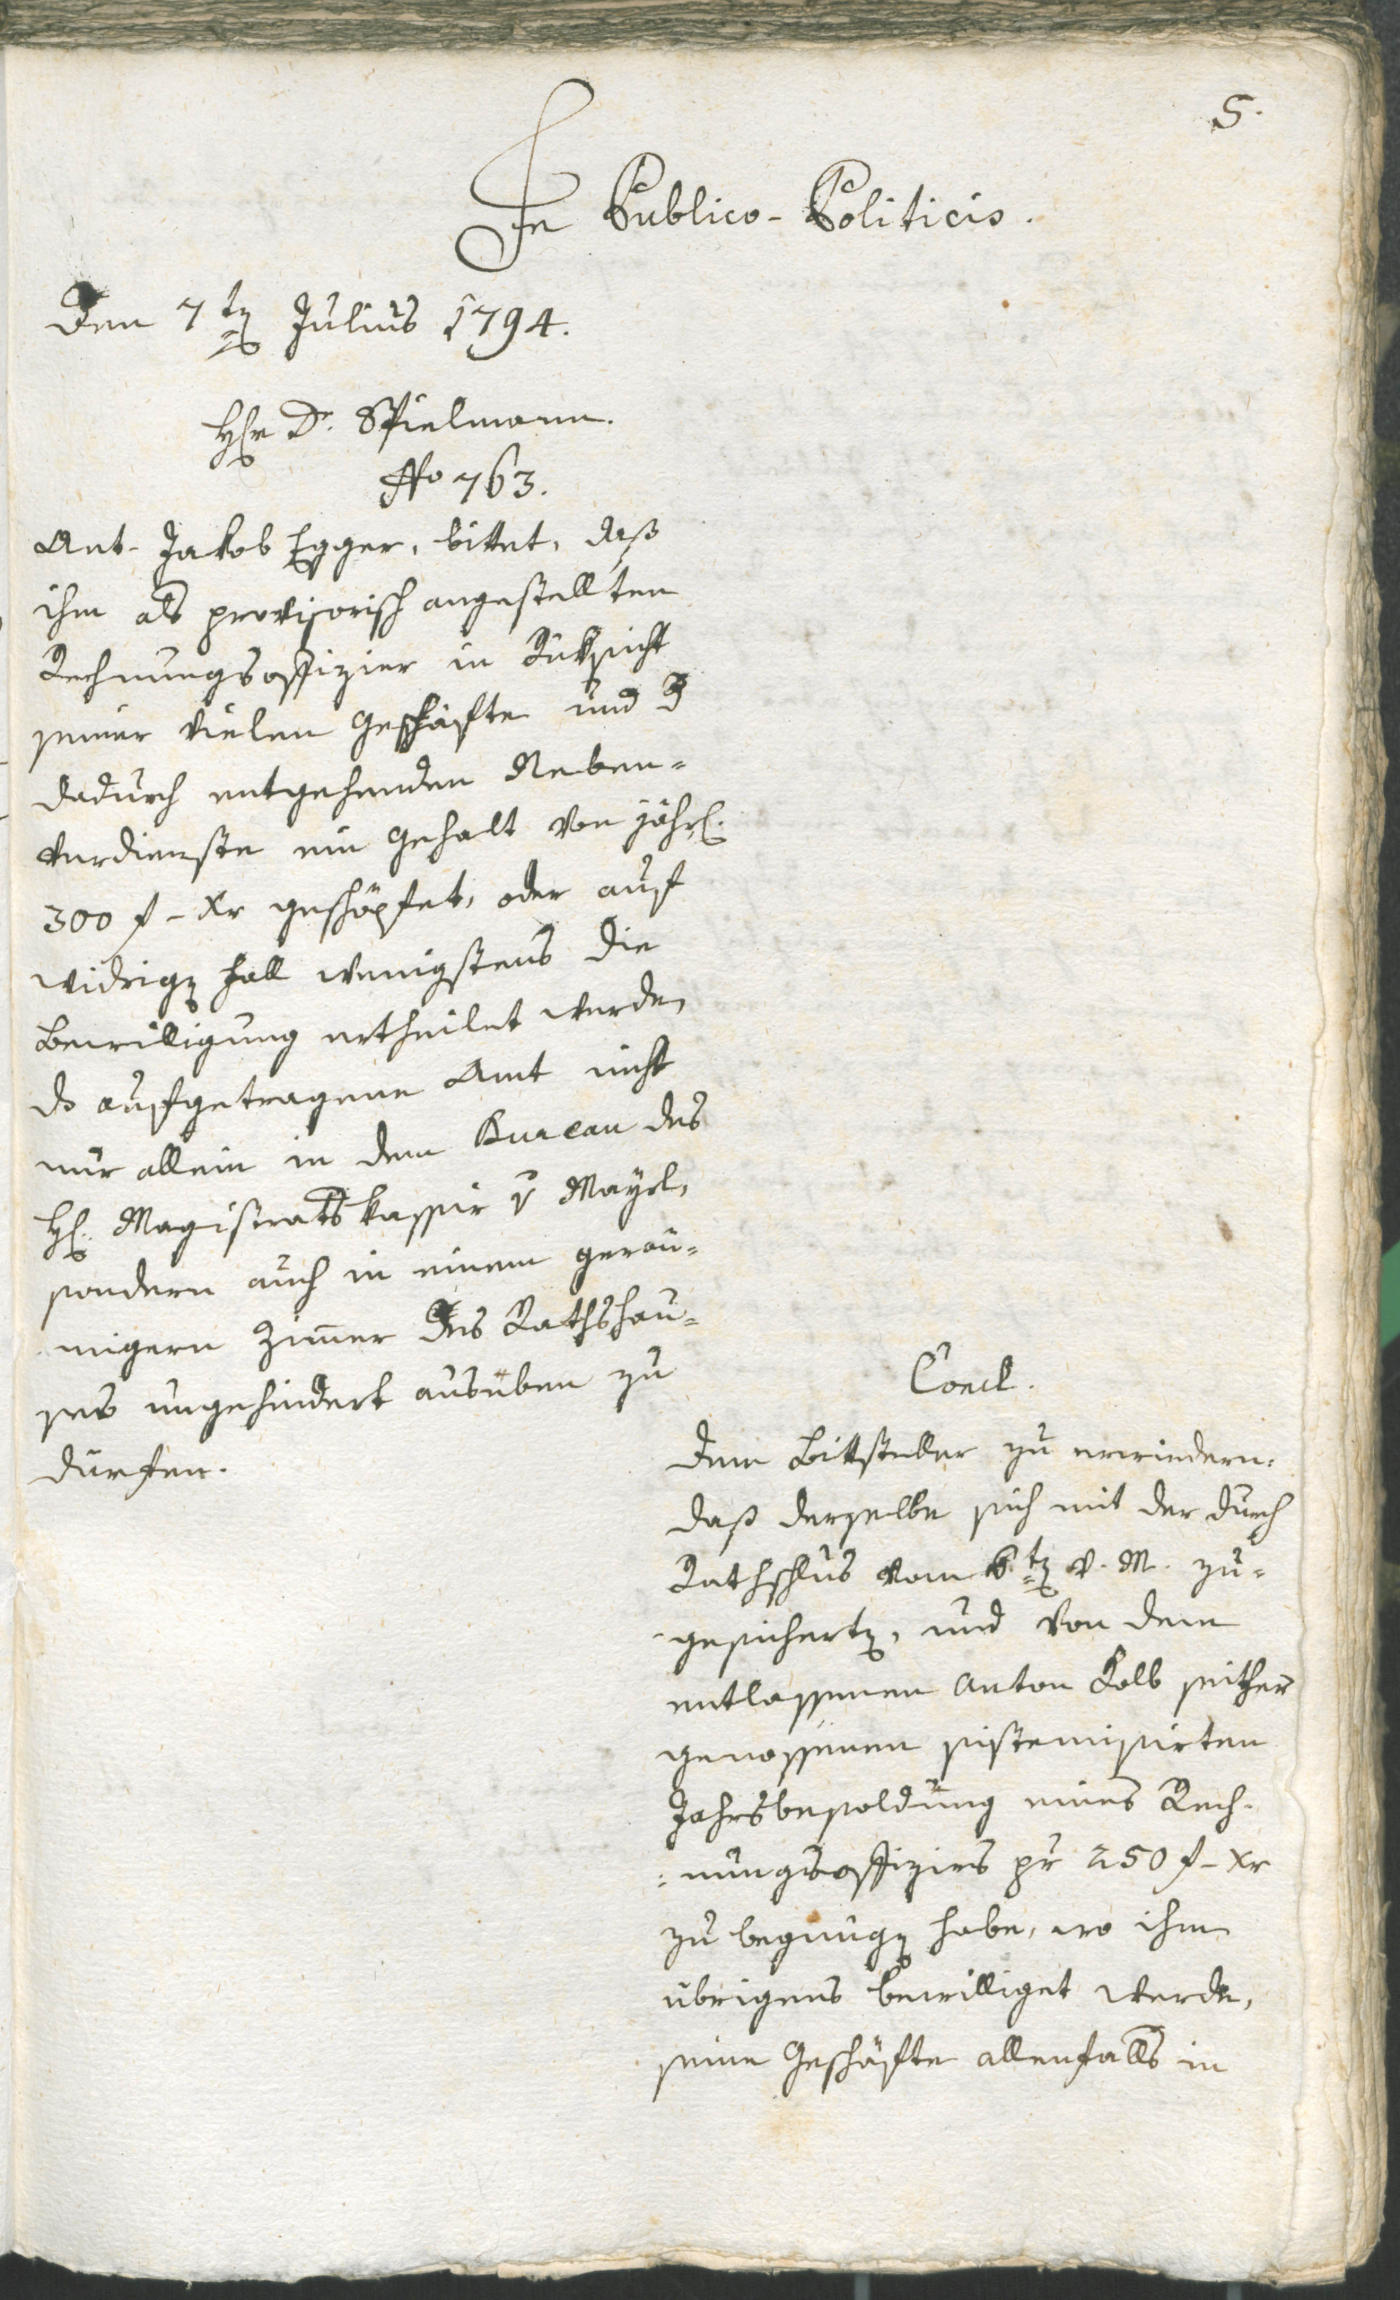 5.
In Publico-Politicis.
Den 7ten Julius 1794.
Hr Dr. Spielmann.
No 763.
Ant. Jakob Egger, bittet, daß
ihm als provisorisch angestellten
Rechnungsoffizier in Rüksicht
seiner vielen Geschäfte und d
dadurch entgehenden Neben-
verdienste ein Gehalt von jährl.
300 f - Xr geschöpfet, oder auf
widrigen Fall wenigstens die
Bewilligung ertheilet werde,
ds aufgetragene Amt nicht
nur allein in dem Bureau des
H. Magistratskassir v Mayrl,
sondern auch in einem geräu-
migern Zimer des Rathshau-
ses ungehindert ausüben zu
dürfen.
Concl.
Dem Bittsteller zu erwiedern:
daß derselbe sich mit der durch
Rathschlus vom 6ten v. M. zu-
gesicherten, und von dem
entlassenen Anton Kolb seither
genossenen sistemisirten
Jahrsbesoldung eines Rech-
nungsoffiziers pr 250 f - Xr
zu begnügen habe, wo ihm
übrigens bewilliget werde,
seine Geschäfte allenfalls in